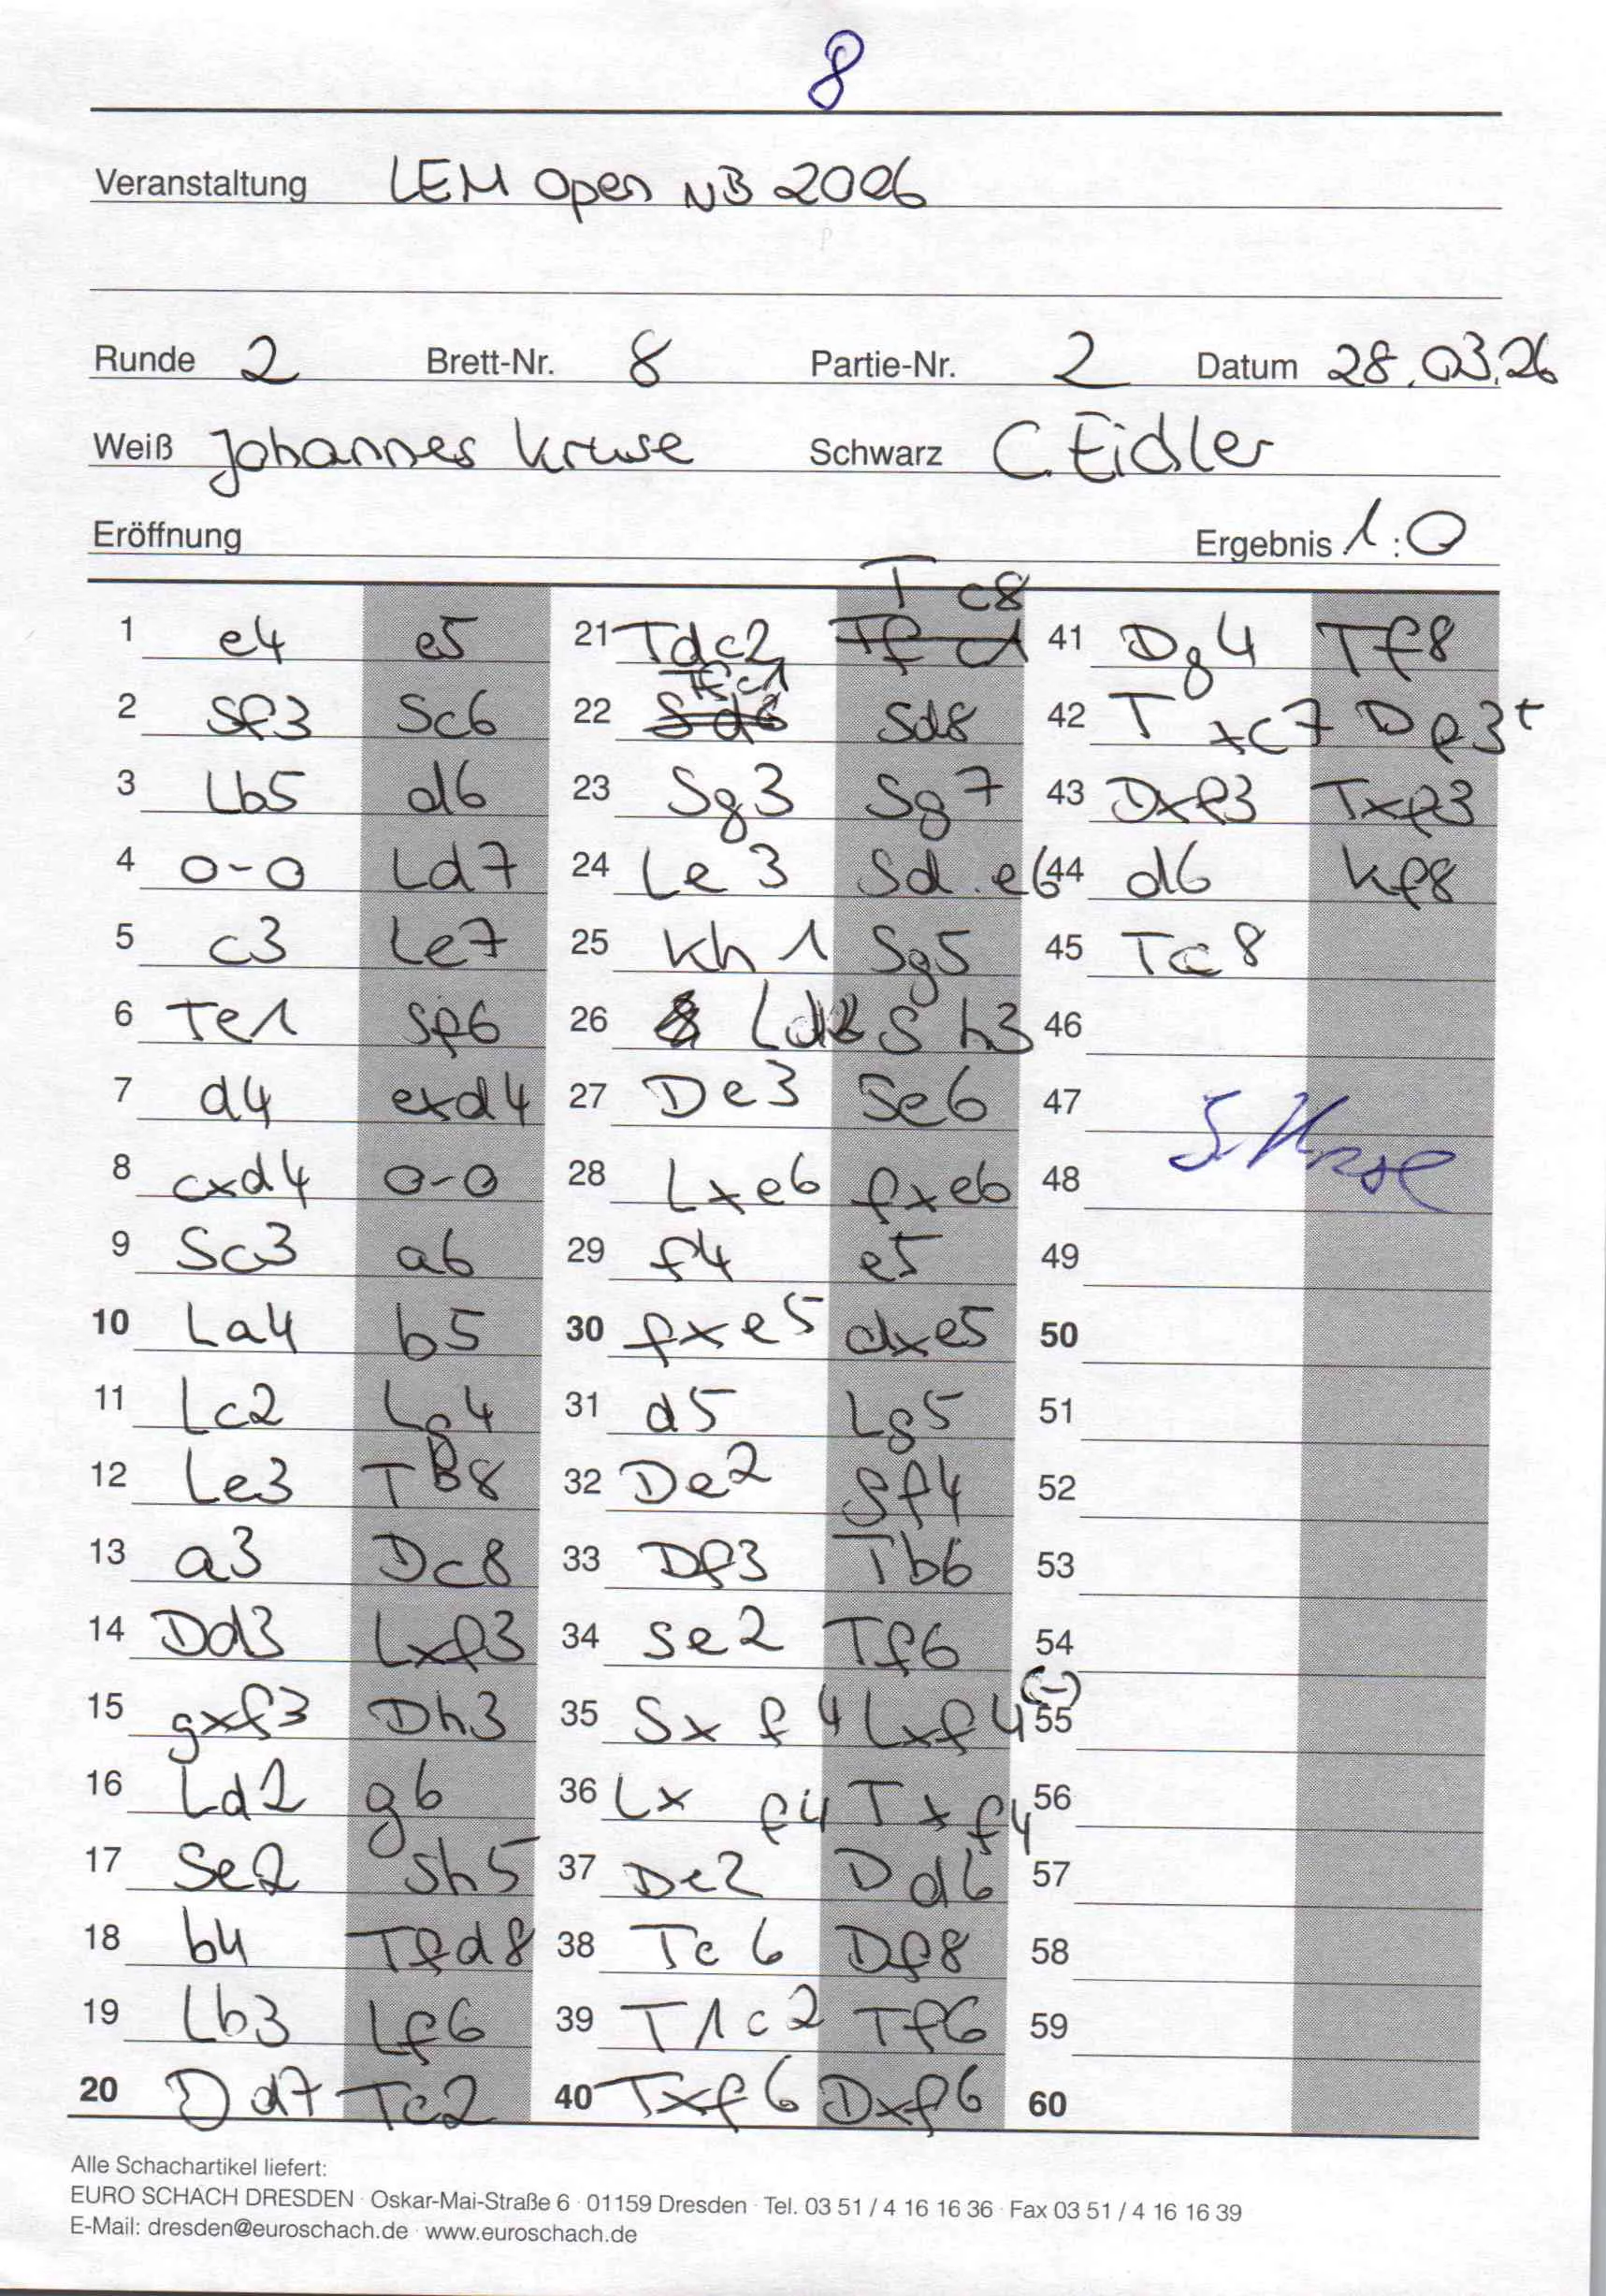 8
Veranstaltung LEM Open NB 2026
Runde 2 Brett-Nr. 8 Partie-Nr. 2 Datum 28.03.26
Weiß Johannes Kruse Schwarz C. Eidler
Eröffnung Ergebnis 1:0
1 e4 e5
2 Sf3 Sc6
3 Lb5 d6
4 0-0 Ld7
5 c3 Le7
6 Te1 Sf6
7 d4 exd4
8 cxd4 0-0
9 Sc3 a6
10 La4 b5
11 Lc2 Lg4
12 Le3 Tb8
13 a3 Dc8
14 Dd3 Lxf3
15 gxf3 Dh3
16 Ld2 g6
17 Se2 Sh5
18 b4 Tfd8
19 Lb3 Lf6
20 Dd7 Tc2
Tc8
21 Tdc2
Tfc1
22 Sd8
23 Sg3 Sg7
24 Le3 Sd.e6
25 Kh1 Sg5
26 Ld2 Sh3
27 De3 Se6
28 Lxe6 fxe6
29 f4 e5
30 fxe5 dxe5
31 d5 Lg5
32 De2 Sf4
33 Df3 Tb6
34 Se2 Tf6
35 Sxf4 Lxf4 (-)
36 Lxf4 Txf4
37 De2 Dd6
38 Tc6 Df8
39 T1c2 Tf6
40 Txf6 Dxf6
41 Dg4 Tf8
42 Txc7 Df3+
43 Dxf3 Txf3
44 d6 Kf8
45 Tc8
46
47
48
49
50
51
52
53
54
55
56
57
58
59
60
Alle Schachartikel liefert:
EURO SCHACH DRESDEN · Oskar-Mai-Straße 6 · 01159 Dresden · Tel. 03 51 / 4 16 16 36 · Fax 03 51 / 4 16 16 39
E-Mail: dresden@euroschach.de · www.euroschach.de